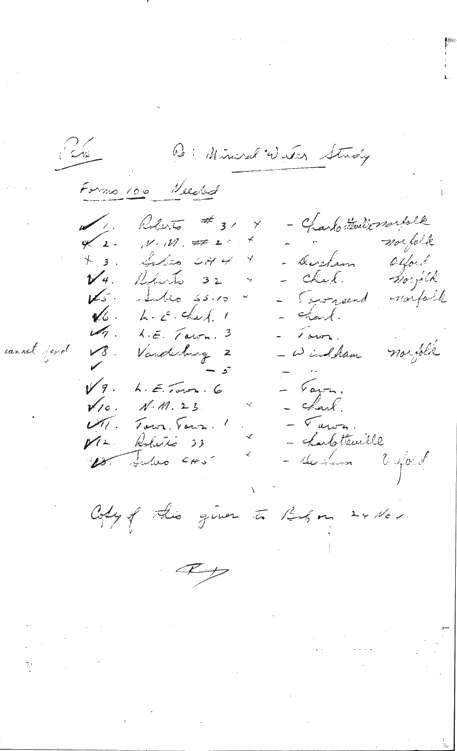 Pete R: Mineral Water Study
Forms 100 Needed
✓ 1. Roberts # 31 x - Charlotteville Norfolk
x 2. N. M. # 2 x - " Norfolk
x 3. CH 4 x - Oxford
✓ 4. Roberts 32 x - Charl. Norfolk
✓ 5. SS.10 x - Townsend Norfolk
✓ 6. L. E. Charl. 1 - Charl.
✓ 7. L. E. Town. 3 - Town.
cannot find ✓ 8. Vanderburg 2 - Windham Norfolk
✓ - 5 - "
✓ 9. L. E. Town. 6 - Town.
✓ 10. N. M. 23 x - Charl.
✓ 11. Town. Town. 1 - Town.
✓ 12. Roberts 33 x - Charlotteville
13. CH5 x - Oxford
Copy of this given to Bob on 24 Nov.